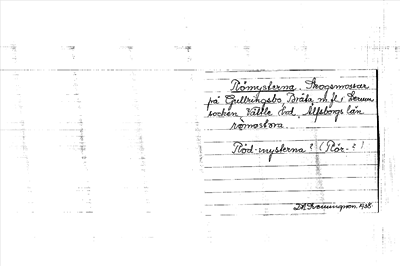 Römysterna. Skogsmossar
på Gullringsbo, Bråta m. fl. i Lerum
socken Vättle hd, Älfsborgs län
römostora.
Röd-mysterna? (Rör-?)
1938